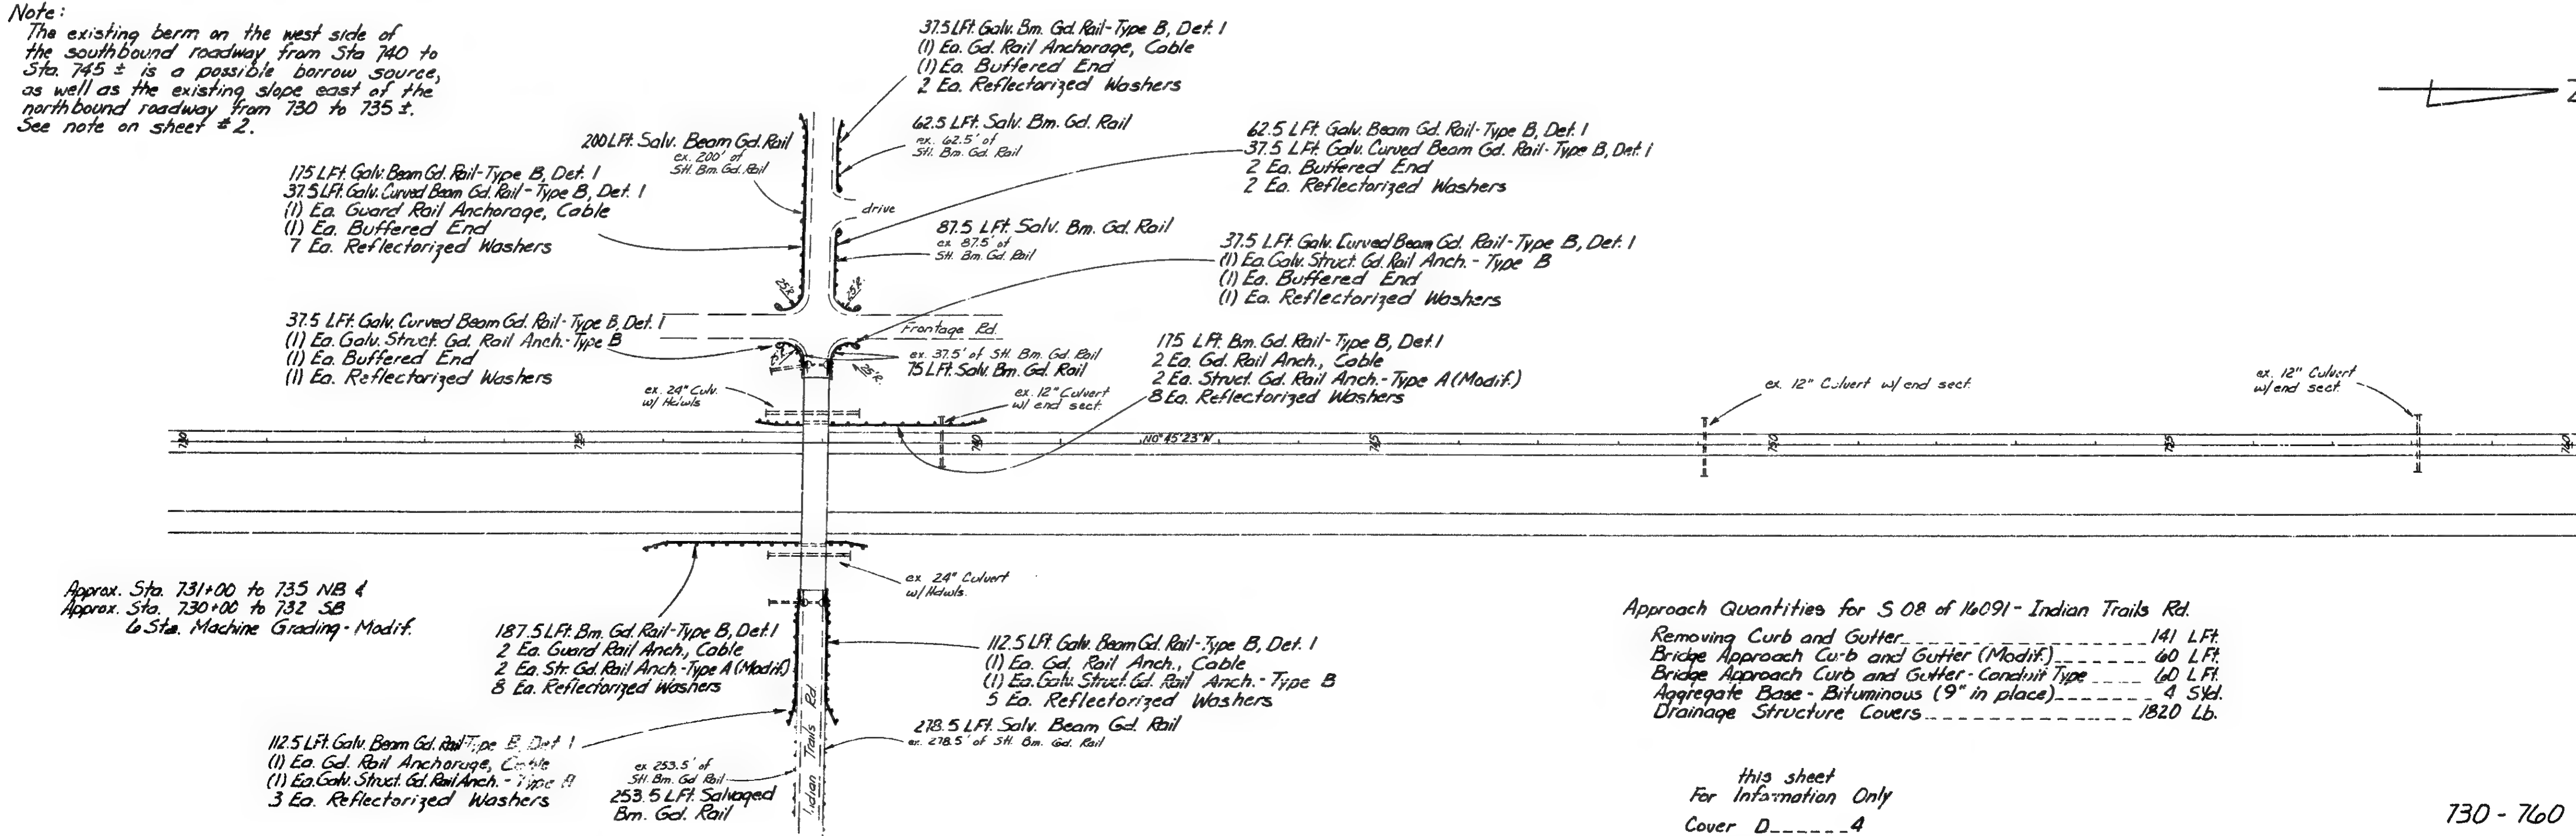 Note:
The existing berm on the west side of
the southbound roadway from Sta 740 to
Sta. 745 ± is a possible borrow source,
as well as the existing slope east of the
northbound roadway from 730 to 735 ±.
See note on sheet # 2.
37.5 LFt. Galv. Bm. Gd. Rail-Type B, Det. 1
(1) Ea. Gd. Rail Anchorage, Cable
(1) Ea. Buffered End
2 Ea. Reflectorized Washers
200 LFt. Salv. Beam Gd. Rail
ex. 200' of
Stl. Bm. Gd. Rail
62.5 LFt. Salv. Bm. Gd. Rail
ex. 62.5' of
Stl. Bm. Gd. Rail
62.5 LFt. Galv. Beam Gd. Rail-Type B, Det. 1
37.5 LFt. Galv. Curved Beam Gd. Rail-Type B, Det. 1
2 Ea. Buffered End
2 Ea. Reflectorized Washers
175 LFt. Galv. Beam Gd. Rail-Type B, Det. 1
37.5 LFt. Galv. Curved Beam Gd. Rail-Type B, Det. 1
(1) Ea. Guard Rail Anchorage, Cable
(1) Ea. Buffered End
7 Ea. Reflectorized Washers
drive
87.5 LFt. Salv. Bm. Gd. Rail
ex. 87.5' of
Stl. Bm. Gd. Rail
37.5 LFt. Galv. Curved Beam Gd. Rail-Type B, Det. 1
(1) Ea. Galv. Struct. Gd. Rail Anch.-Type B
(1) Ea. Buffered End
(1) Ea. Reflectorized Washers
25'R.
25'R.
37.5 LFt. Galv. Curved Beam Gd. Rail-Type B, Det. 1
(1) Ea. Galv. Struct. Gd. Rail Anch.-Type B
(1) Ea. Buffered End
(1) Ea. Reflectorized Washers
Frontage Rd.
ex. 37.5' of Stl. Bm. Gd. Rail
75 LFt. Salv. Bm. Gd. Rail
25'R.
25'R.
175 LFt. Bm. Gd. Rail-Type B, Det. 1
2 Ea. Gd. Rail Anch., Cable
2 Ea. Struct. Gd. Rail Anch.-Type A (Modif.)
8 Ea. Reflectorized Washers
ex. 24" Culv.
w/ Hdwls
ex. 12" Culvert
w/ end sect.
ex. 12" Culvert w/ end sect.
ex. 12" Culvert
w/ end sect.
730 735 740 N0°45'23"W 745 750 755 760
ex. 24" Culvert
w/ Hdwls.
Approx. Sta. 731+00 to 735 NB &
Approx. Sta. 730+00 to 732 SB
6 Sta. Machine Grading-Modif.
187.5 LFt. Bm. Gd. Rail-Type B, Det. 1
2 Ea. Guard Rail Anch., Cable
2 Ea. Str. Gd. Rail Anch.-Type A (Modif.)
8 Ea. Reflectorized Washers
112.5 LFt. Galv. Beam Gd. Rail-Type B, Det. 1
(1) Ea. Gd. Rail Anch., Cable
(1) Ea. Galv. Struct. Gd. Rail Anch.-Type B
5 Ea. Reflectorized Washers
278.5 LFt. Salv. Beam Gd. Rail
ex. 278.5' of Stl. Bm. Gd. Rail
112.5 LFt. Galv. Beam Gd. Rail-Type B, Det 1
(1) Ea. Gd. Rail Anchorage, Cable
(1) Ea. Galv. Struct. Gd. Rail Anch.-Type
3 Ea. Reflectorized Washers
ex 253.5' of
Stl. Bm. Gd Rail
253.5 LFt. Salvaged
Bm. Gd. Rail
Indian Trails Rd
Approach Quantities for S 08 of 16091 - Indian Trails Rd.
Removing Curb and Gutter 141 LFt.
Bridge Approach Curb and Gutter (Modif.) 60 LFt.
Bridge Approach Curb and Gutter-Conduit Type 60 LFt.
Aggregate Base-Bituminous (9" in place) 4 SYd.
Drainage Structure Covers 1820 Lb.
this sheet
For Information Only
Cover D 4
730 - 760